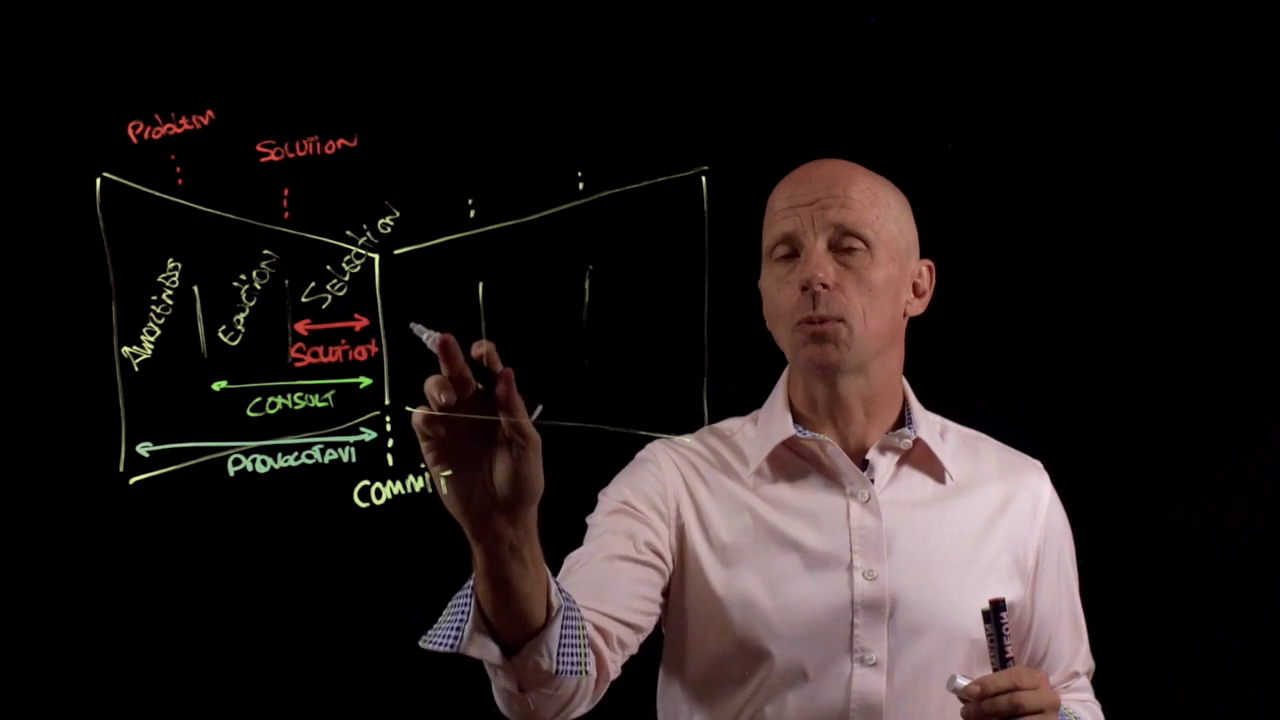 Problem
SOLUTION
Awareness
Education
SELECTION
SOLUTION
CONSULT
PROVOCOTAVI
COMMIT
NEON